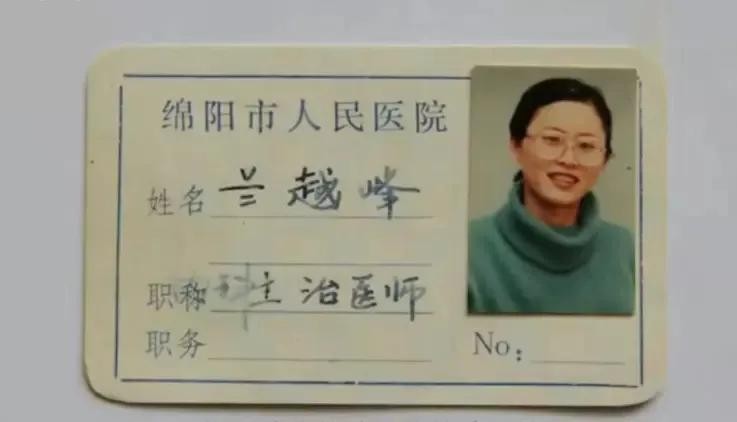 绵阳市人民医院
姓名 兰越峰
职称 科主治医师
职务
No: